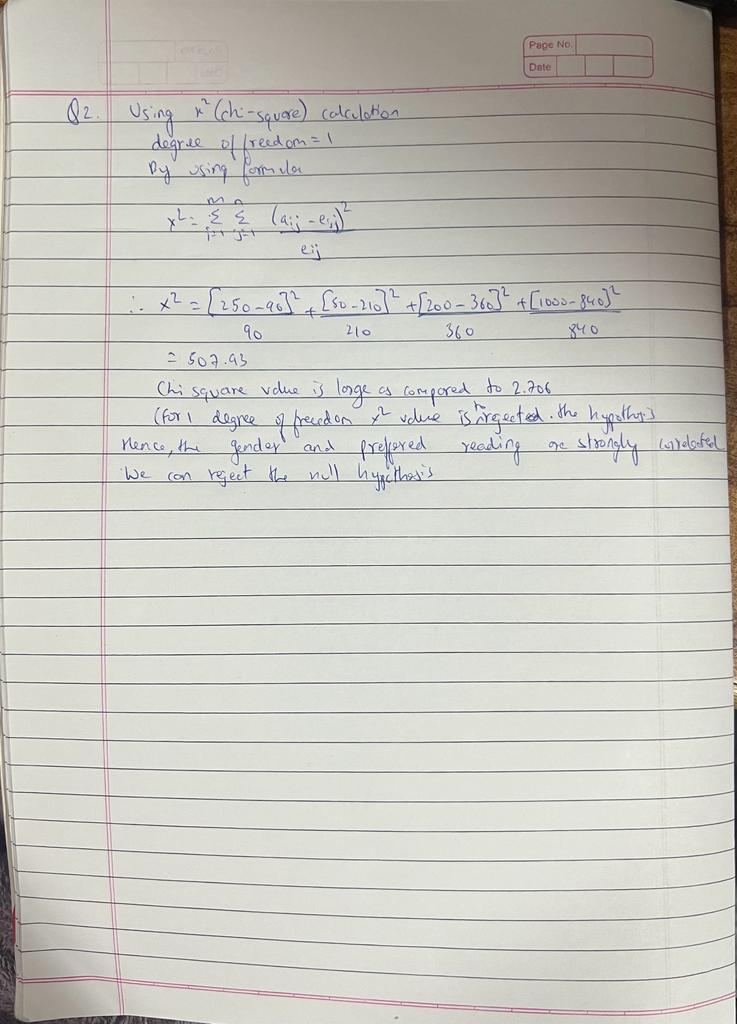 Page No.
Date
Q2. Using x² (chi-square) calculation
degree of freedom = 1
By using formula
x² = m Σ i=1 n Σ j=1 (aij - eij)² / eij
∴ x² = [250-90]² / 90 + [50-210]² / 210 + [200-360]² / 360 + [1000-840]² / 840
= 507.93
Chi square value is large as compared to 2.706
(For 1 degree of freedom x² value is rejected. the hypothesis
Hence, the gender and preffered reading are strongly correlated
We can reject the null hypothesis